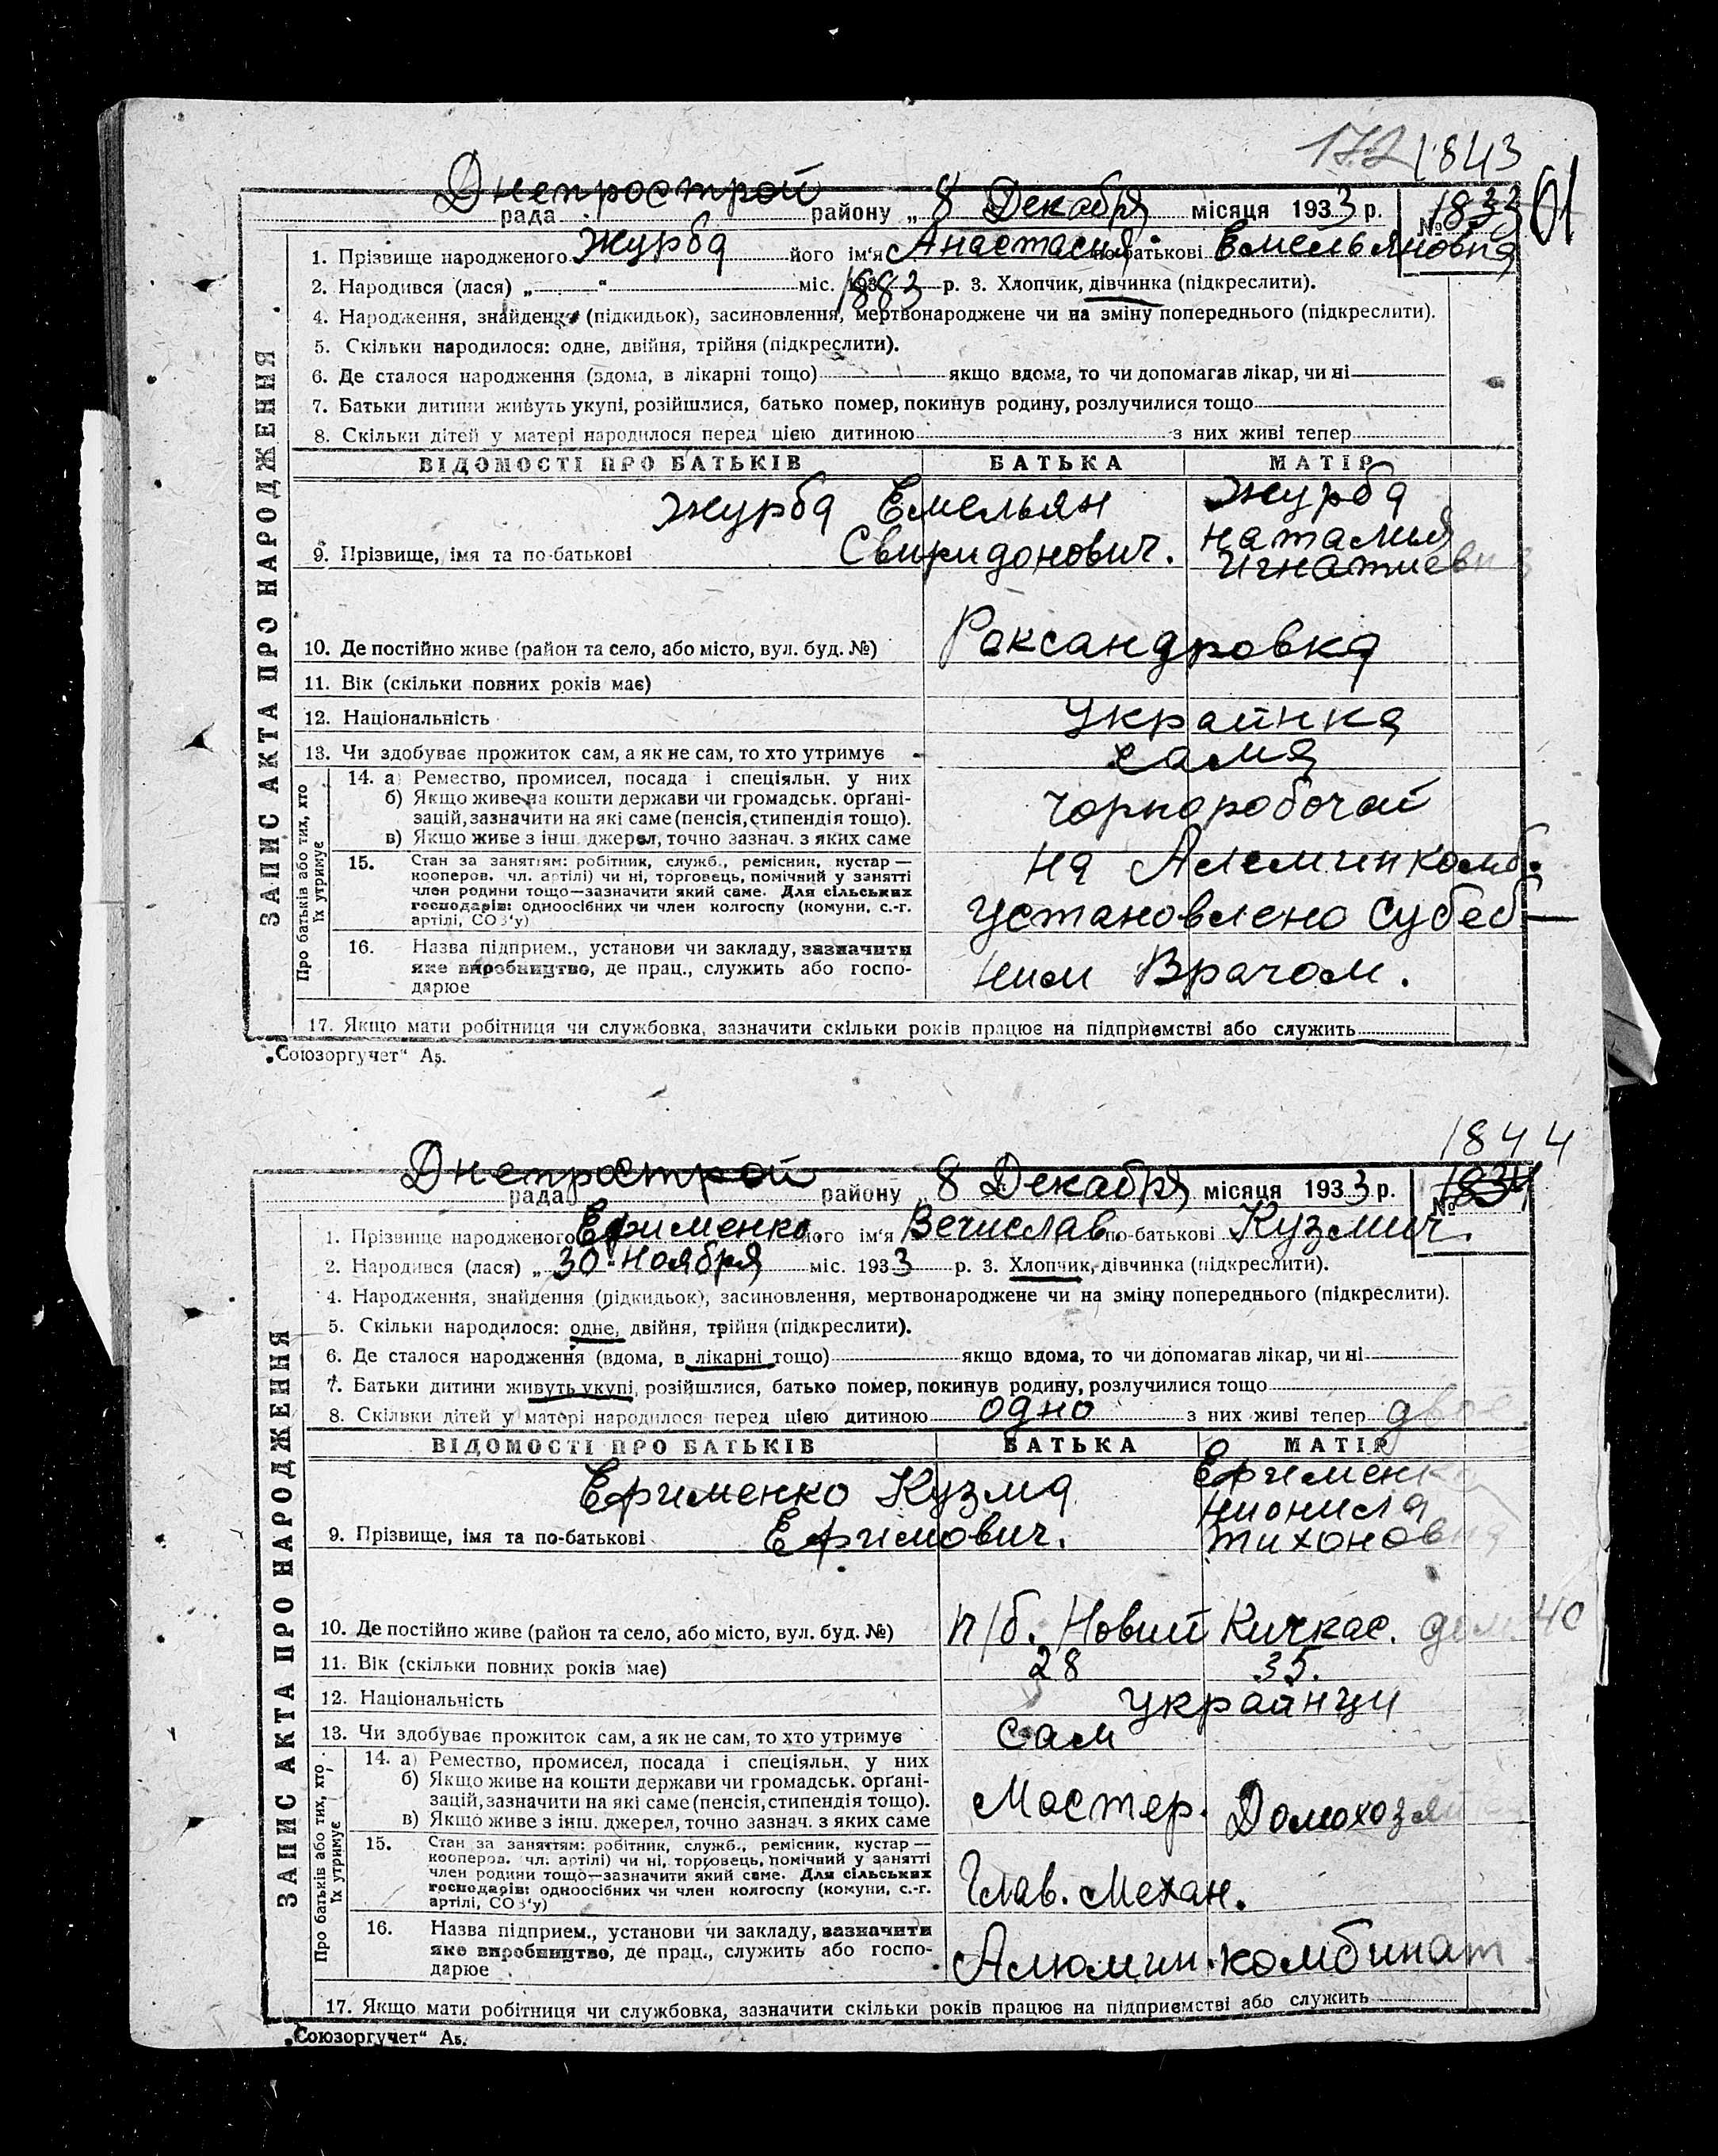 172 1843
Днепрострой
рада района „ 8 Декабря місяця 1933 р. № 1833 61
1. Прізвище народженого Журба його ім'я Анастасия по-батькові Емельяновна
2. Народився (лася) „ “ міс. 1883 р. 3. Хлопчик, дівчинка (підкреслити).
4. Народження, знайдення (підкидьок), засиновлення, мертвонароджене чи на зміну попереднього (підкреслити).
5. Скільки народилося: одне, двійня, трійня (підкреслити).
6. Де сталося народження (вдома, в лікарні тощо) якщо вдома, то чи допомагав лікар, чи ні
7. Батьки дитини живуть укупі, розійшлися, батько помер, покинув родину, розлучилися тощо
8. Скільки дітей у матері народилося перед цією дитиною з них живі тепер
ЗАПИС АКТА ПРО НАРОДЖЕННЯ
ВІДОМОСТІ ПРО БАТЬКІВ БАТЬКА МАТІР
Журба Емельян Журба
Наталия
9. Прізвище, імя та по-батькові Свиридонович. Игнатиевна
10. Де постійно живе (район та село, або місто, вул. буд. №) Роксандровка
11. Вік (скільки повних років має)
12. Національність Украинка
13. Чи здобуває прожиток сам, а як не сам, то хто утримує сама
Про батьків або тих, хто їх утримує
14. а) Ремество, промисел, посада і спеціяльн. у них
б) Якщо живе на кошти держави чи громадськ. орґані-
зацій, зазначити на які саме (пенсія, стипендія тощо). Чорноробочай
в) Якщо живе з інш. джерел, точно зазнач. з яких саме
15. Стан за заняттям: робітник, служб., ремісник, кустар —
кооперов. чл. артілі) чи ні, торговець, помічний у занятті на Алюминкомб.
член родини тощо—зазначити який саме. Для сільських
господарів: одноосібних чи член колгоспу (комуни, с.-г.
артілі, СОЗ'у) Установлено Судеб—
16. Назва підприєм., установи чи закладу, зазначити
яке виробництво, де прац., служить або госпо-
дарює ним Врачом.
17. Якщо мати робітниця чи службовка, зазначити скільки років працює на підприємстві або служить
„Союзоргучет“ А5.
1844
Днепрострой
рада району „ 8 Декабря місяця 1933 р. № 1834
1. Прізвище народженого Ефименко його ім'я Вечислав по-батькові Кузмич.
2. Народився (лася) „ 30 “ Ноября міс. 1933 р. 3. Хлопчик, дівчинка (підкреслити).
4. Народження, знайдення (підкидьок), засиновлення, мертвонароджене чи на зміну попереднього (підкреслити).
5. Скільки народилося: одне, двійня, трійня (підкреслити).
6. Де сталося народження (вдома, в лікарні тощо) якщо вдома, то чи допомагав лікар, чи ні
7. Батьки дитини живуть укупі, розійшлися, батько помер, покинув родину, розлучилися тощо
8. Скільки дітей у матері народилося перед цією дитиною одно з них живі тепер двое
ЗАПИС АКТА ПРО НАРОДЖЕННЯ
ВІДОМОСТІ ПРО БАТЬКІВ БАТЬКА МАТІР
Ефименко Кузма Ефименко
9. Прізвище, імя та по-батькові Ефимович. Тихоновна
10. Де постійно живе (район та село, або місто, вул. буд. №) п/б. Новий Кичкас. дом. 40
11. Вік (скільки повних років має) 28 35.
12. Національність Украинци
13. Чи здобуває прожиток сам, а як не сам, то хто утримує Сам
Про батьків або тих, хто їх утримує
14. а) Ремество, промисел, посада і спеціяльн. у них
б) Якщо живе на кошти держави чи громадськ. орґані-
зацій, зазначити на які саме (пенсія, стипендія тощо). Мастер. Домохозяйка
в) Якщо живе з інш. джерел, точно зазнач. з яких саме
15. Стан за заняттям: робітник, служб., ремісник, кустар —
кооперов. чл. артілі) чи ні, торговець, помічний у занятті
член родини тощо—зазначити який саме. Для сільських
господарів: одноосібних чи член колгоспу (комуни, с.-г. Глав. Механ.
артілі, СОЗ'у)
16. Назва підприєм., установи чи закладу, зазначити
яке виробництво, де прац., служить або госпо-
дарює Алюмин.комбинат
17. Якщо мати робітниця чи службовка, зазначити скільки років працює на підприємстві або служить
„Союзоргучет“ А5.